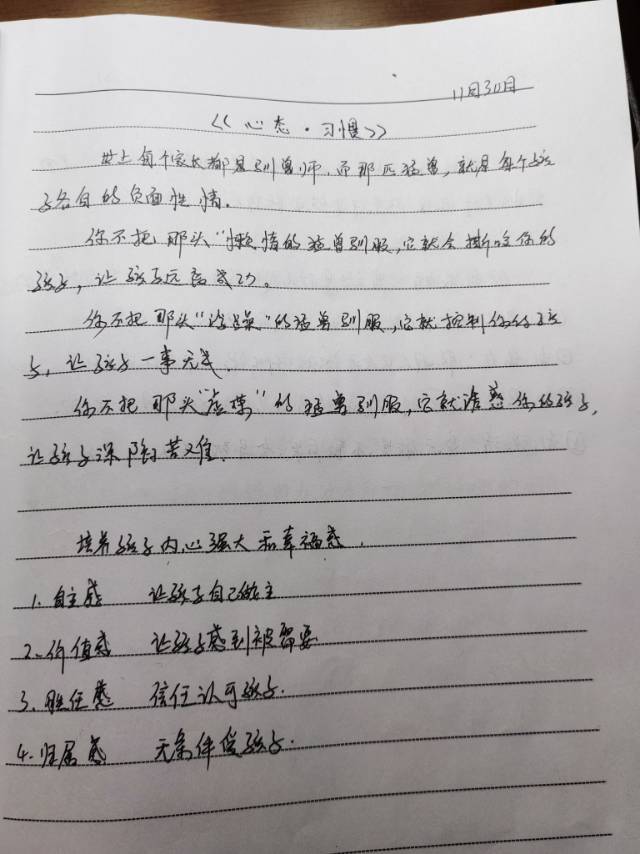 11月30日
《心态·习惯》
世上每个家长都是驯兽师,而那匹猛兽,就是每个孩
子各自的负面性情。
你不把那头“懒惰的猛兽驯服,它就会撕咬你的
孩子,让孩子远离成功。
你不把那头“浮躁”的猛兽驯服,它就控制你的孩
子,让孩子一事无成
你不把那头“虚荣”的猛兽驯服,它就诱惑你的孩子,
让孩子深陷苦难.
培养孩子内心强大和幸福感.
1.自主感 让孩子自己做主
2.价值感 让孩子感到被需要
3.胜任感 信任认可孩子.
4.归属感 无条件爱孩子.